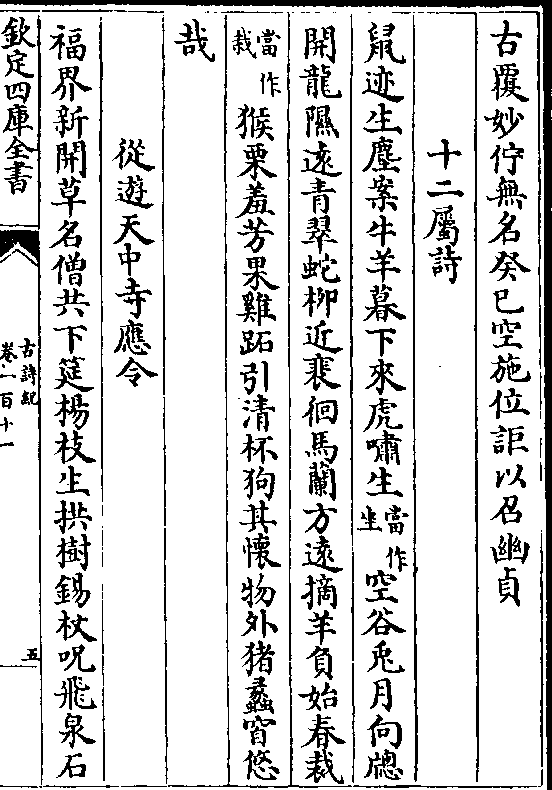 古覆妙佇無名癸巳空施位詎以召幽貞
十二屬詩
鼠迹生塵案牛羊暮下來虎嘯生當作坐空谷兎月向牕
開龍隰逺青翠蛇栁近裴徊馬蘭方逺摘羊負始春裁
當作栽猴栗羞芳果雞跖引清杯狗其懷物外猪蠡窅悠
哉
從遊天中寺應令
福界新開草名僧共下筵楊枝生拱樹錫杖呪飛泉石
欽定四庫全書
古詩紀
卷一百十一
五